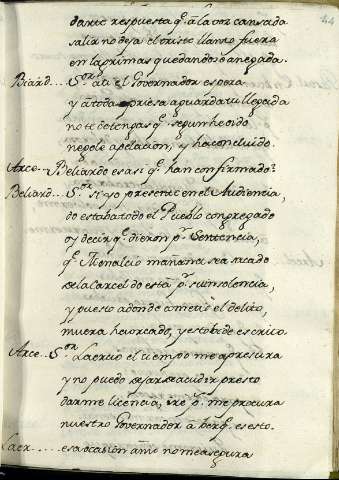 darte respuesta q. a la voz cansada
salir no deja el triste llanto fuera
en lagrimas quedandose anegada.
Biard... S.or a ti el Governador espera
y a toda priesa aguarda tu llegada
no te detengas q. segun he oido
negole apelacion, y ha concluido.
Arce.. Beliardo es asi q. han confirmado?
Beliard.. S.or si yo presente en el Audiencia,
do estaba todo el Pueblo congregado
oy decir q. dieron p.r Sentencia,
q. Monalcio mañana sea sacado
de la Carcel do esta p.r su insolencia,
y puesto adonde cometio el delito,
muera heorcado, y estobede escrito.
Arce... S.or Laercio el tiempo me apresura
y no puedo dejar de acudir presto
darme licencia, iré p. me procura
nuestro Governador à
Laer.... esa ocasion amo no me asegura
44